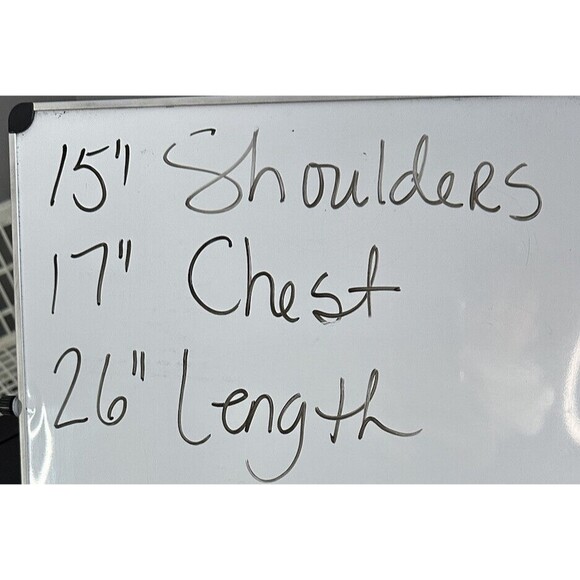 15" Shoulders
17" Chest
26" Length